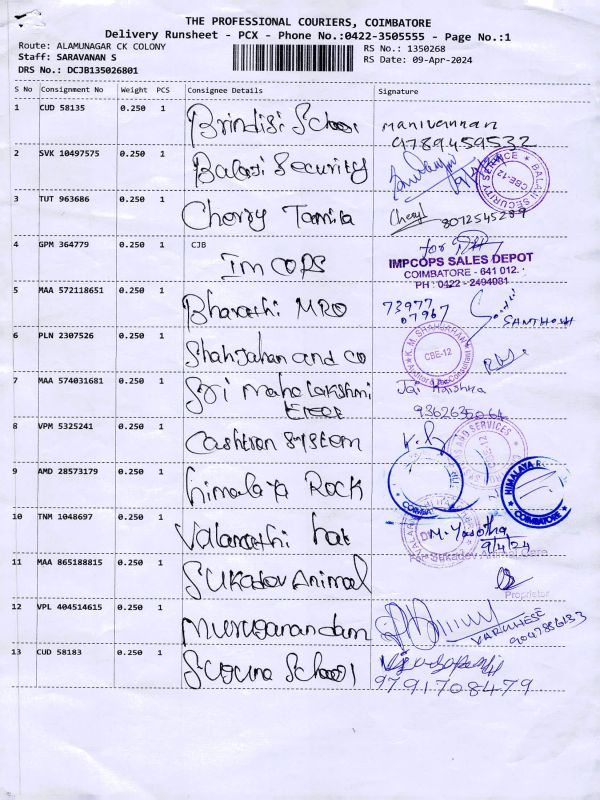 THE PROFESSIONAL COURIERS, COIMBATORE
Delivery Runsheet - PCX - Phone No.:0422-3505555 - Page No.:1
Route: ALAMUNAGAR CK COLONY
RS No.: 1350268
Staff: SARAVANAN S
RS Date: 09-Apr-2024
DRS No.: DCJB135026801
S No Consignment No Weight PCS Consignee Details Signature
1 CUD 58135 0.250 1 Brindisi School Manivannan
9789459532
2 SVK 10497575 0.250 1 Balaji Security
BALAJI SECURITY SERVICE CBE-12
3 TUT 963686 0.250 1 Cherry Tamila Cheryl 8072545289
4 GPM 364779 0.250 1 CJB
IM COPS
for
IMPCOPS SALES DEPOT
COIMBATORE - 641 012.
PH : 0422 - 2494081
5 MAA 572118651 0.250 1 Bharathi MRO 73977
07967 SANTHOSH
6 PLN 2307526 0.250 1 Shahjahan and co
K.M. SHAHJAHAN CBE-12
7 MAA 574031681 0.250 1 Sri mahalakshmi
Jai Krishna
9362635064
8 VPM 5325241 0.250 1 Cashtron system
9 AMD 28573179 0.250 1 himalaya Rock
HIMALAYA COIMBATORE
10 TNM 1048697 0.250 1 Valarmathi hat M. Yasotha
9/4/24
11 MAA 865188815 0.250 1 SUKADOV Animal
For Sukadov Care
Proprietor
12 VPL 404514615 0.250 1 Muruganandam
VARGHESE
9047856133
13 CUD 58183 0.250 1 Suguna School
9791708479